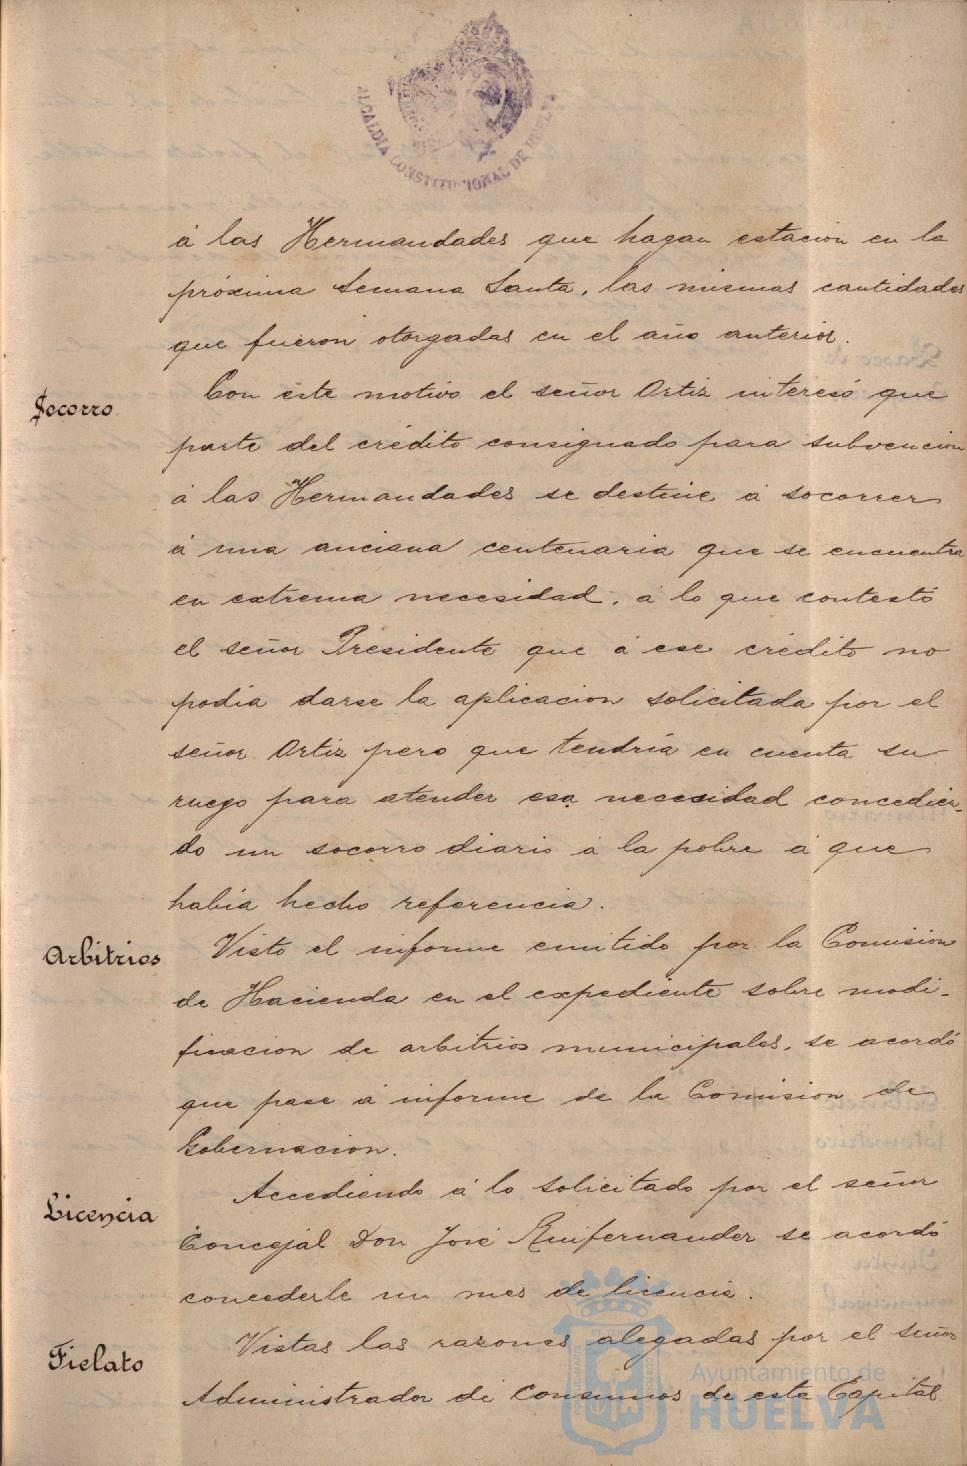 ALCALDÍA CONSTITUCIONAL DE HUELVA
á las Hermandades que hagan estación en la
próxima Semana Santa, las mismas cantidades
que fueron otorgadas en el año anterior.
Socorro
Con este motivo el señor Ortiz interesó que
parte del crédito consignado para subvencion
á las Hermandades se destine á socorrer
á una anciana centenaria que se encuentra
en extrema necesidad, á lo que contestó
el señor Presidente que á ese crédito no
podía darse la aplicacion solicitada por el
señor Ortiz pero que tendría en cuenta su
ruego para atender esa necesidad concedien-
do un socorro diario á la pobre á que
había hecho referencia.
Arbitrios
Visto el informe emitido por la Comision
de Hacienda en el expediente sobre modi-
ficacion de arbitrios municipales, se acordó
que pase á informe de la Comision de
Gobernacion.
Licencia
Accediendo á lo solicitado por el señor
Concejal Don José Ruifernandez se acordó
concederle un mes de licencia.
Fielato
Vistas las razones alegadas por el señor
Administrador de Consumos de esta Capital
Ayuntamiento de
HUELVA